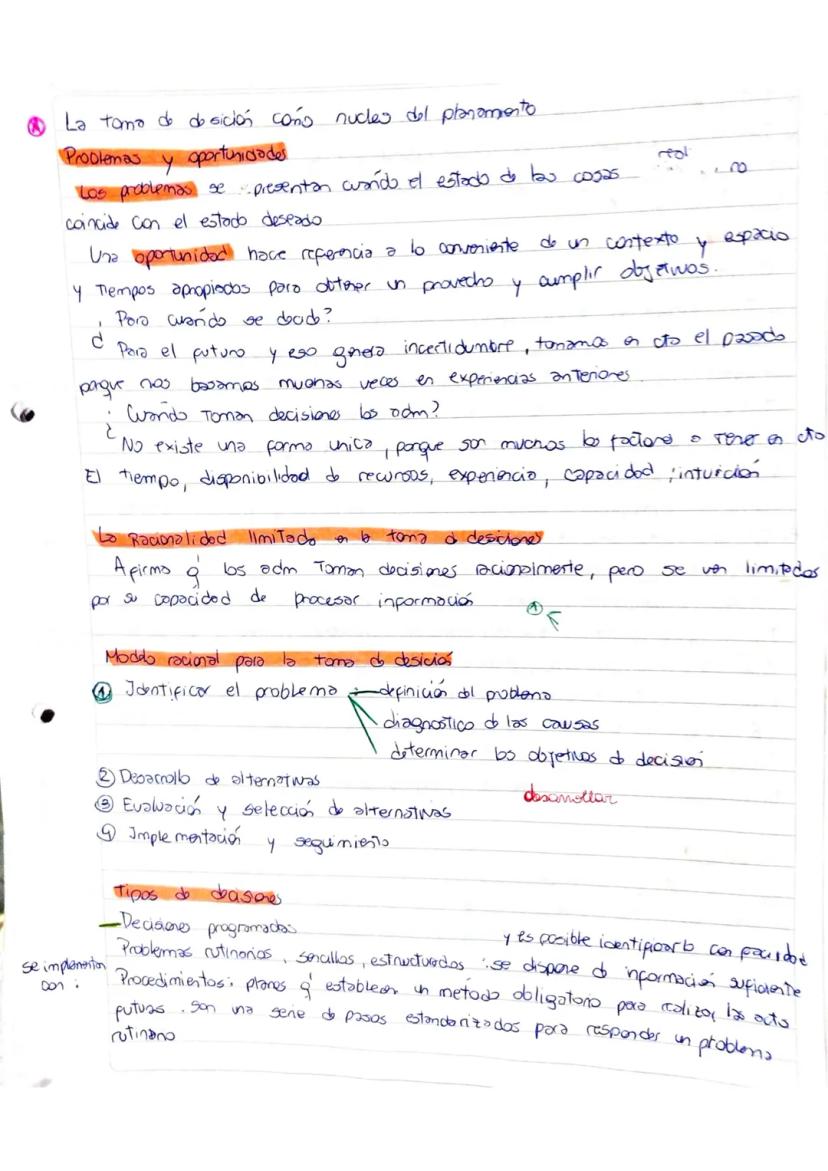 La toma de desición como nucleo del planeamiento
Problemas y oportunidades
Los problemas se presentan cuando el estado real de las cosas no
coincide con el estado deseado
Una oportunidad hace referencia a lo conveniente de un contexto y espacio
y tiempos apropiados para obtener un provecho y cumplir objetivos.
¿Para cuándo se decide?
Para el futuro y eso genera incertidumbre, tomamos en cta el pasado
porque nos basamos muchas veces en experiencias anteriores
¿Cuándo toman decisiones los adm?
No existe una forma unica, porque son muchos los factores a tener en cta
El tiempo, disponibilidad de recursos, experiencia, capacidad, intuición
La Racionalidad limitada en la toma de desiciones
Afirma q' los adm toman decisiones racionalmente, pero se ven limitados
por su capacidad de procesar información
1
Modelo racional para la toma de desición
1 Identificar el problema definición del problema
diagnostico de las causas
determinar los objetivos de decisión
2 Desarrollo de alternativas
desarrollar
3 Evaluación y selección de alternativas
4 Implementación y seguimiento
Tipos de desiciones
- Decisiones programadas
y es posible identificarlo con facilidad
Problemas rutinarios, sencillos, estructurados. se dispone de información suficiente
se implementan con:
Procedimientos: planes q' establecen un metodo obligatorio para realizar las acts
futuras. Son una serie de pasos estandarizados para responder un problema
rutinario